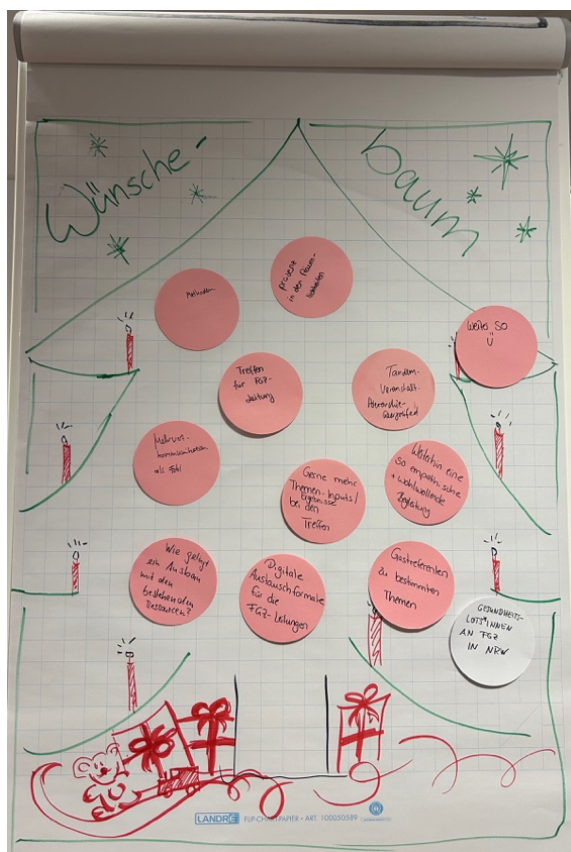 Wünsche-
baum
Methoden
präsent
in den Räum-
lichkeiten
Weiter so
Ü
Treffen
für FGZ-
Leitung
Tandem-
Veranstalt.
Mehrwert
kommunizieren
als FGZ!
Gerne mehr
Themen-Inputs/
Ergebnisse
bei den
Treffen
Weiterhin eine
so empathische
+ wohlwollende
Begleitung
Wie gelingt
ein Ausbau
mit den
bestehenden
Ressourcen?
Digitale
Austauschformate
für die
FGZ-Leitungen
Gastreferenten
zu bestimmten
Themen
GESUNDHEITS-
LOTS*INNEN
AN FGZ
IN NRW
LANDRÉ FLIP-CHART-PAPIER • ART. 100050589